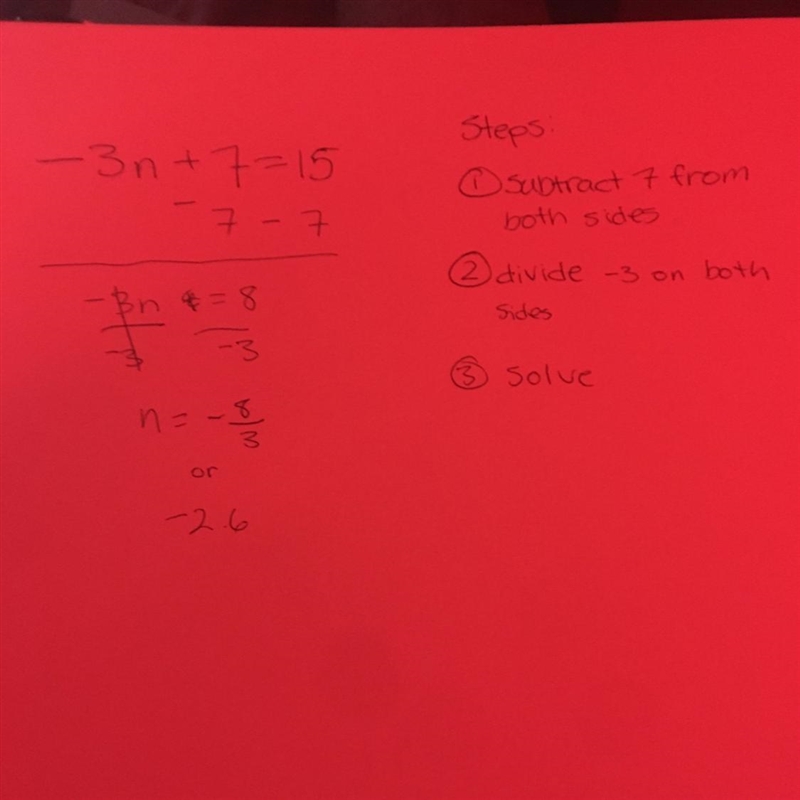 -3n + 7 = 15
- 7 - 7
-3n = 8
-3 -3
n = - 8/3
or
-2.6
Steps:
① subtract 7 from
both sides
② divide -3 on both
sides
③ Solve